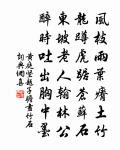 風枝雨葉瘠土竹
龍蹲虎踞蒼蘚石
東坡老人翰林公
醉時吐出胸中墨
黃庭堅題子瞻畫竹石
典網